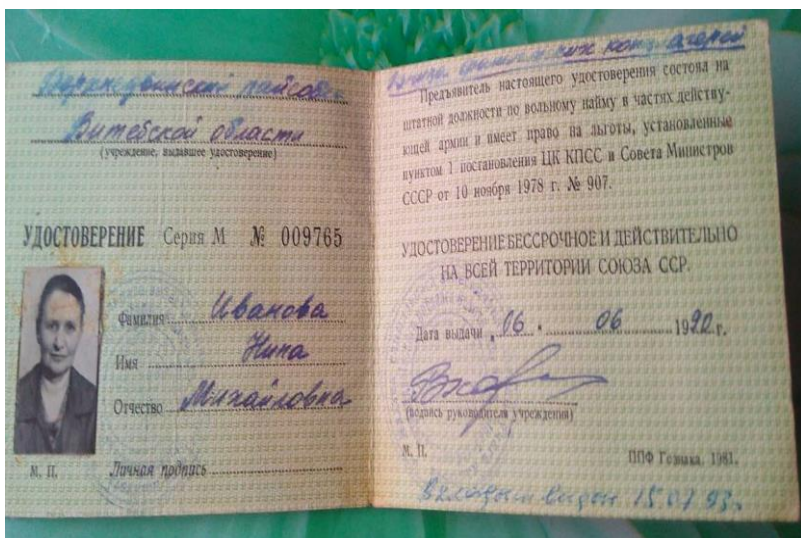 Верхнедвинский райсовет
Витебской области
(учреждение, выдавшее удостоверение)
УДОСТОВЕРЕНИЕ Серия М № 009765
Фамилия Иванова
Имя Нина
Отчество Михайловна
М. П. Личная подпись
Узница фашистских концлагерей
Предъявитель настоящего удостоверения состоял на
штатной должности по вольному найму в частях действу-
ющей армии и имеет право на льготы, установленные
пунктом 1 постановления ЦК КПСС и Совета Министров
СССР от 10 ноября 1978 г. № 907.
УДОСТОВЕРЕНИЕ БЕССРОЧНОЕ И ДЕЙСТВИТЕЛЬНО
НА ВСЕЙ ТЕРРИТОРИИ СОЮЗА ССР.
Дата выдачи „06 . 06 1990 г.
(подпись руководителя учреждения)
М. П. ППФ Гознака. 1981.
выдан 15.07.93